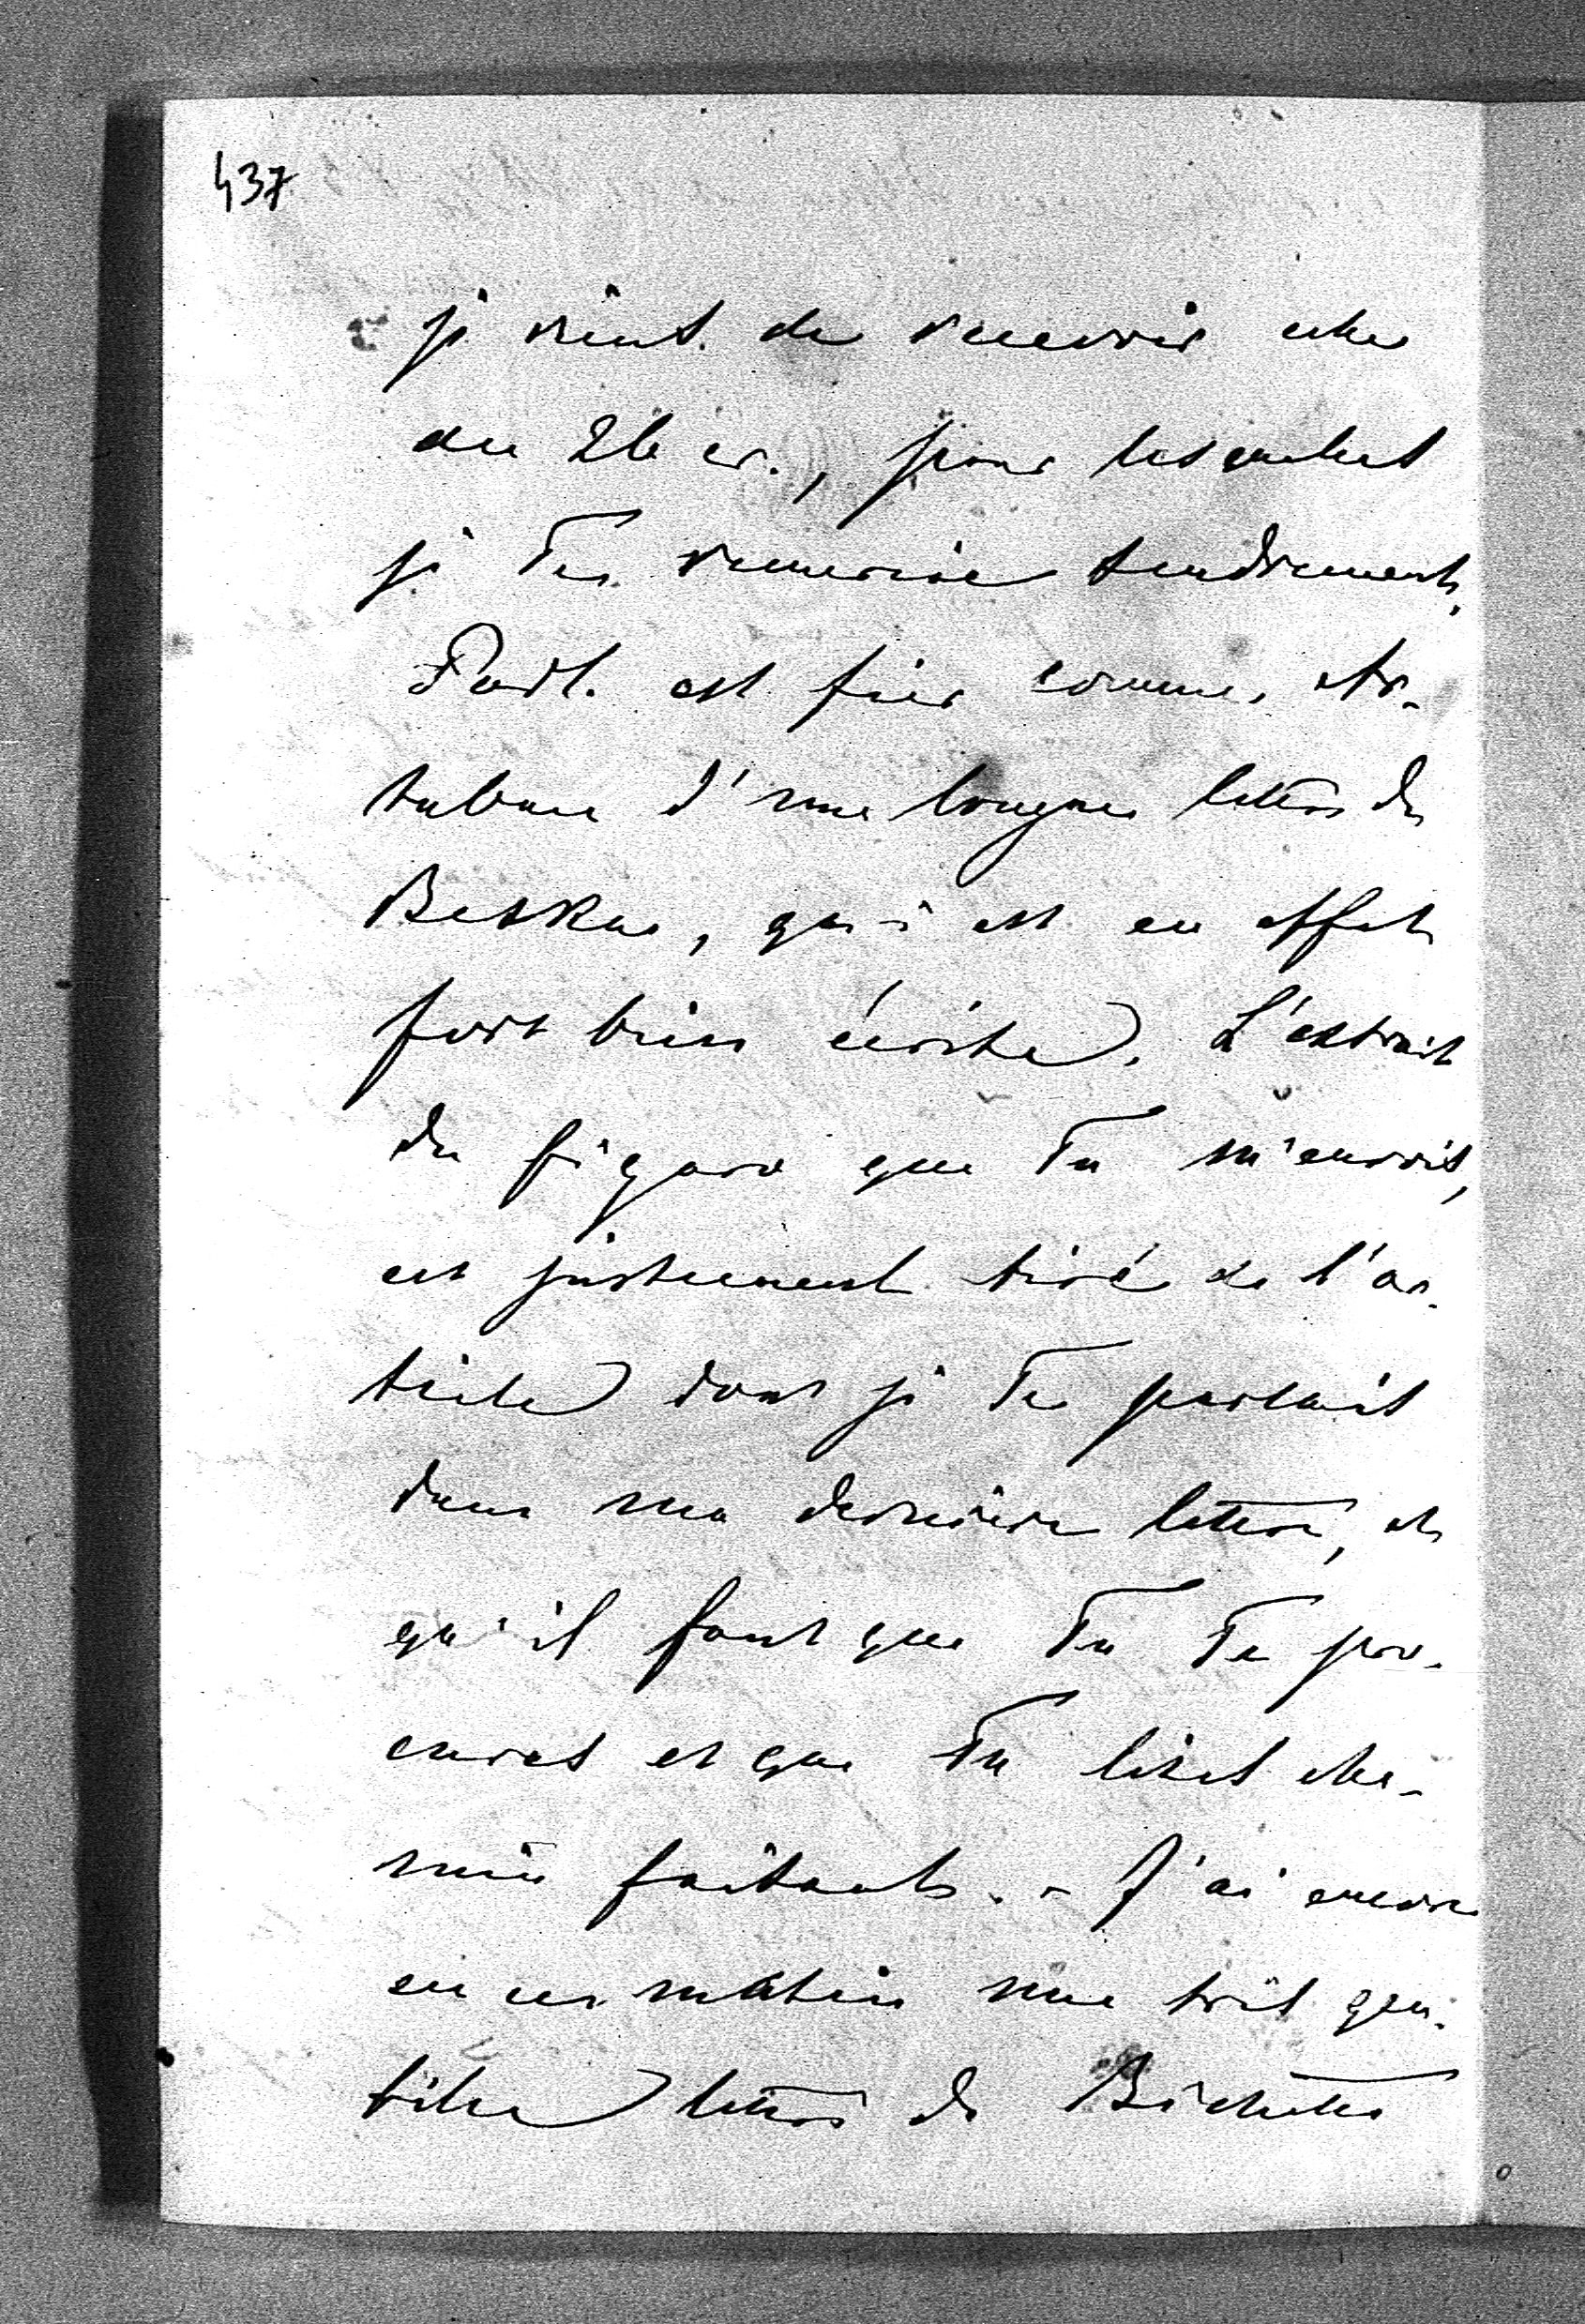 437
je viens de recevoir celle
du 26 cr., pour lesquelles
je Te remercie tendrement.
Padl. est fier comme Ar-
tabane d'une longue lettre de
Betka, qui est en effet
fort bien écrite. L'extrait
du figaro que Tu m'envois,
est justement tiré de l'ar-
ticle dont je Te parlais
dans ma dernière lettre, et
qu'il faut que Tu Te pro-
cures et que Tu lises che-
min faisant. - J'ai encore
eu ce matin une très gen-
tille lettre de Bichette